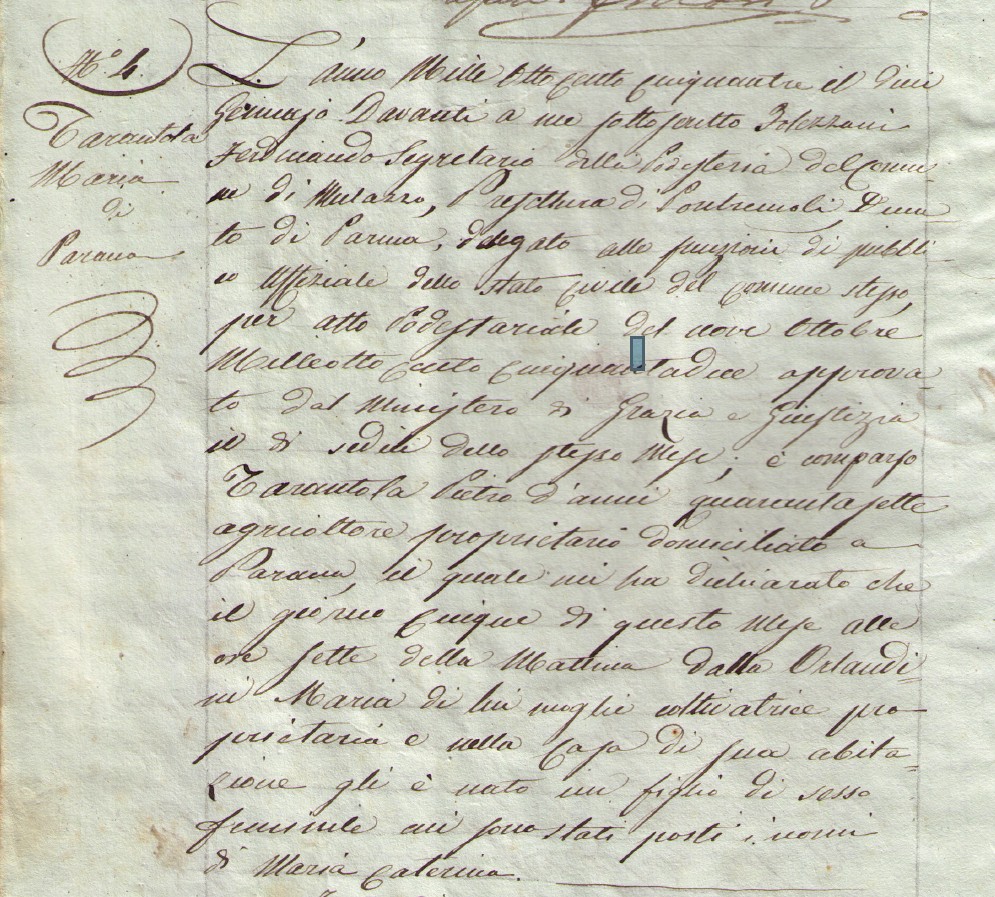 N.o 4.
Tarantola
Maria
di
Parana
L'anno Mille Otto cento cinquantre il dieci
Gennajo Davanti a me sottoscritto Tolozzani
Ferdinando Segretario della Podesteria del Comu-
ne di Mulazzo, Prefettura di Pontremoli, Duca
to di Parma, delegato alle funzioni di pubbli-
co Uffiziale dello stato Civile del Comune stesso,
per atto Podestariale del nove Ottobre
Milleotto cento cinquantadue approva-
to dal Ministero di Grazia e Giustizia
il dì sedici dello stesso Mese; è comparso
Tarantola Pietro d'anni quarantasette
agricoltore proprietario domiciliato a
Parana, il quale mi ha dichiarato che
il giorno cinque di questo Mese alle
ore sette della Mattina dalla Orlandi-
ni Maria di lui moglie coltivatrice pro-
prietaria e nella Casa di sua abita-
zione gli è nato un figlio di sesso
feminile cui sono stati posti i nomi
di Maria Caterina.